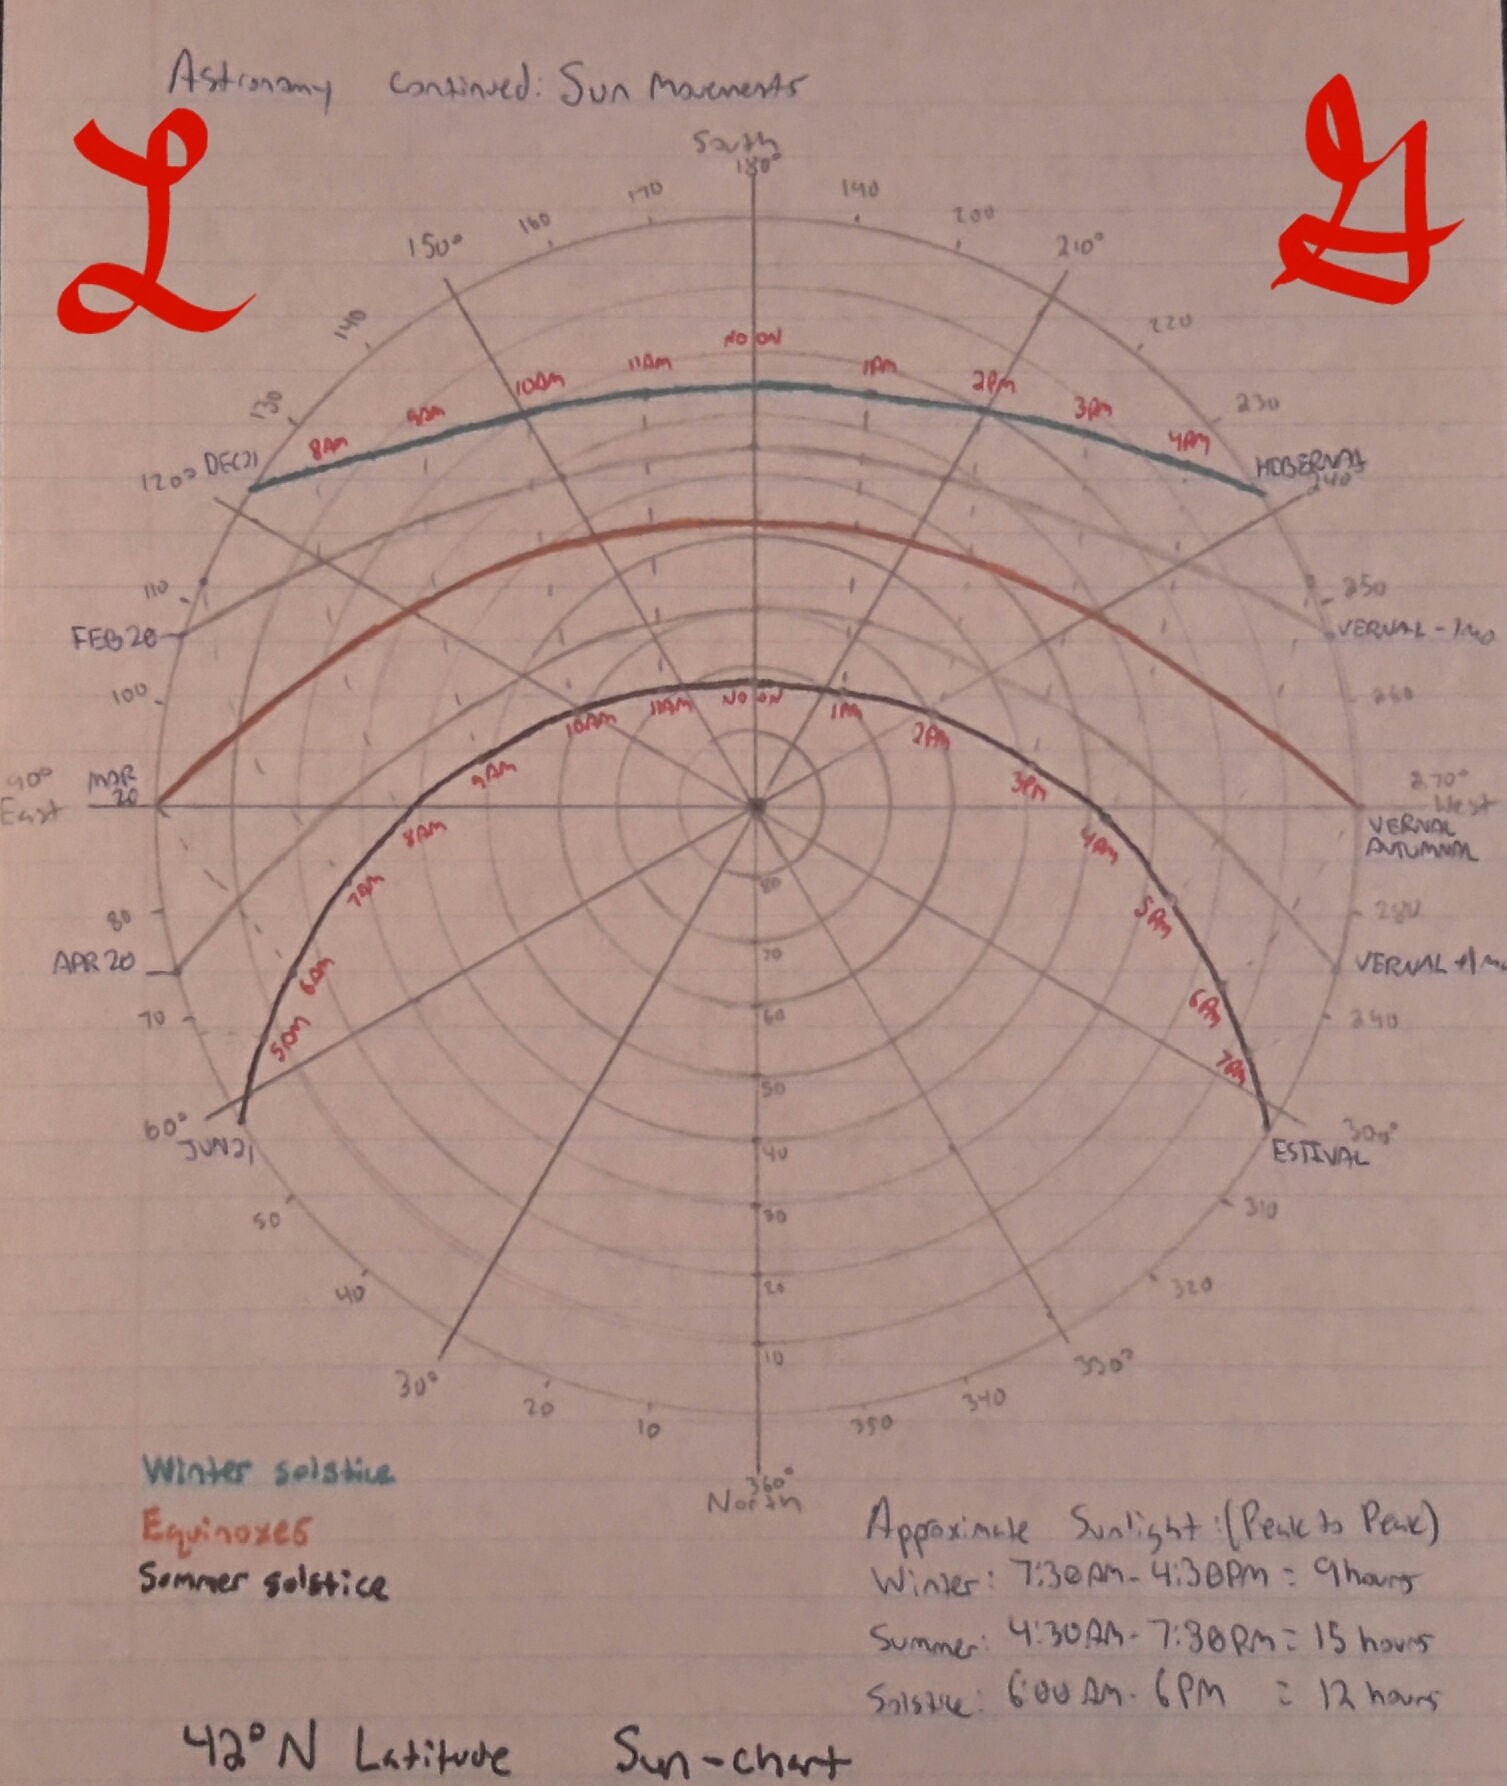 Astronomy Continued: Sun Movements
L
G
South
180°
170
190
160
200
150°
210°
140
220
NOON
11AM
1PM
10AM
2PM
130
9AM
3PM
230
8AM
4PM
120° DEC21
HIBERNAL
240°
110
250
FEB 20
VERNAL - 1MO
100
260
NOON
11AM
1PM
10AM
2PM
9AM
3PM
90°
East
MAR
20
270°
West
8AM
4PM
VERNAL
AUTUMNAL
80
7AM
5PM
80
280
70
APR 20
VERNAL +1MO
6AM
6PM
70
60
290
5AM
7PM
50
60°
JUN21
300°
ESTIVAL
40
50
30
310
40
20
320
10
30°
330°
20
340
10
350
360°
North
Winter solstice
Equinoxes
Sommer solstice
Approximate Sunlight: (Peak to Peak)
Winter: 7:30AM - 4:30PM = 9 hours
Summer: 4:30AM - 7:30PM = 15 hours
Solstice: 6:00 AM - 6PM = 12 hours
42° N Latitude Sun-chart